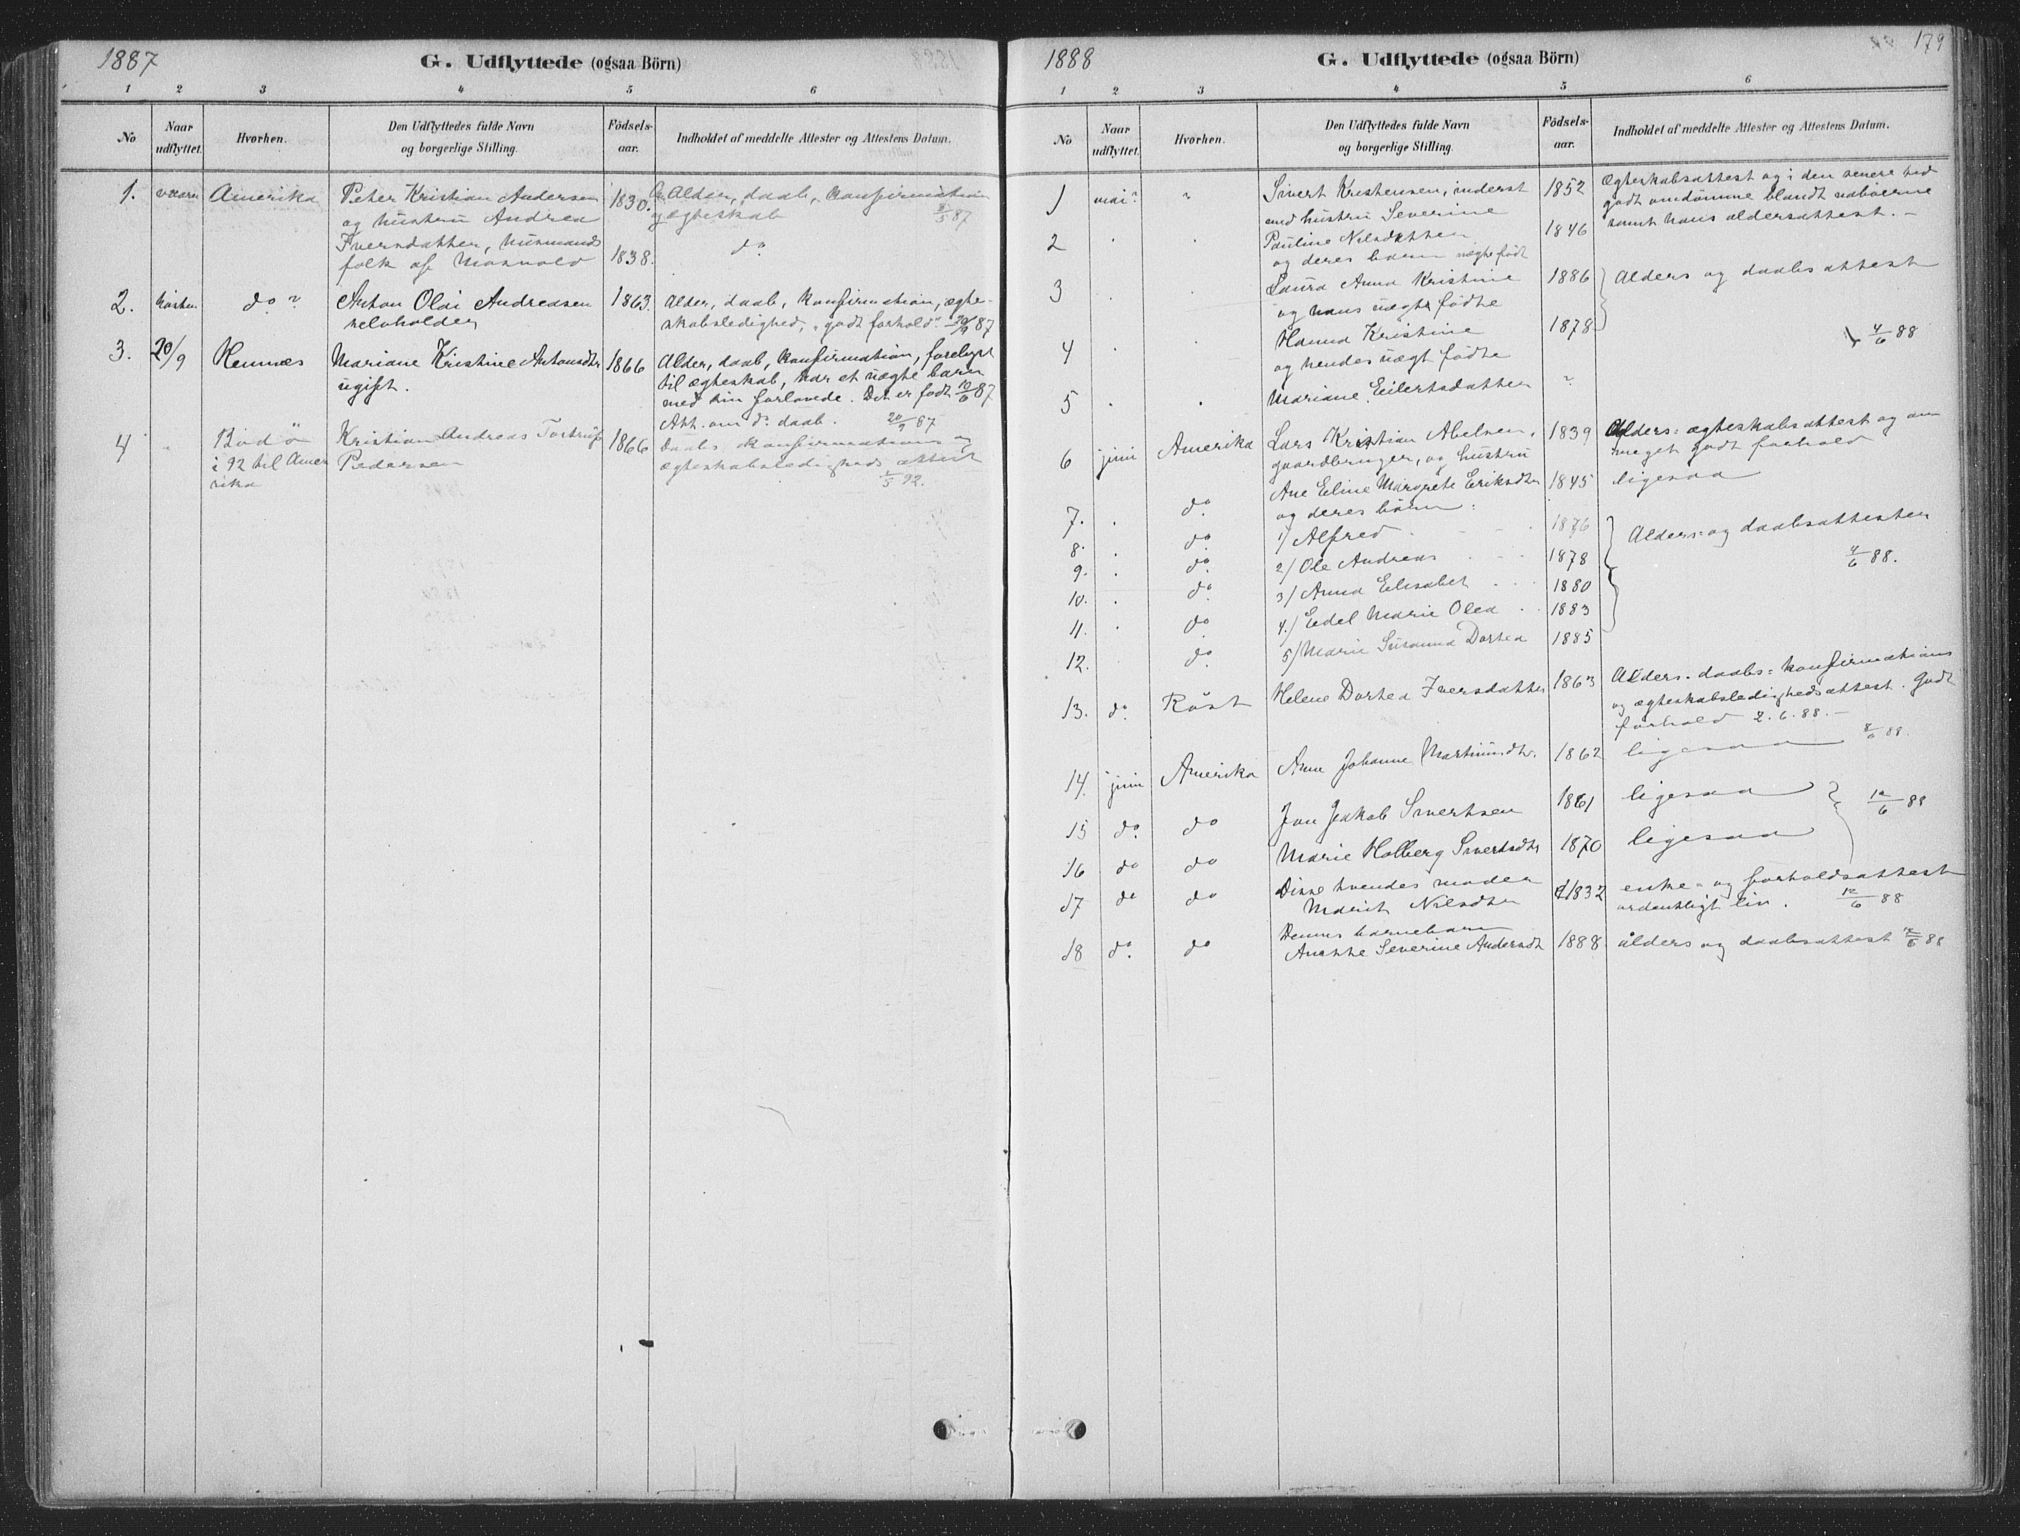 1887
G. Udflyttede (ogsaa Börn)
1 2 3 4 5 6
No
Naar udflyttet.
Hvorhen.
Den Udflyttedes fulde Navn
og borgerlige Stilling.
Födsels-
aar.
Indholdet af meddelte Attester og Attestens Datum.
1. vaaren Amerika Peter Kristian Andersen 1830. Alder, daab, konfirmation
og hustru Andrea og ægteskab 2/5 87
Iversdatter, husmands
folk af 1838. do
2. høsten do ? Anton Olai Andreasen 1863. Alder, daab, konfirmation, ægte-
selvholder skabsledighed, "godt forhold" 20/9 87
3. 20/9 Hemnæs Mariane Kristine Antonsdtr 1866 Alder, daab, konfirmation, forlyst
ugift. til ægteskab, har et uægte barn
med sin forlovede. Det er født 10/6 87
Att. om do daab. 20/9 87
4 " Bodö Kristian Andreas 1866 Daabs konfirmations og
i 92 til Ame Pedersen ægteskabsledigheds attest
rika 1/5 92.
1888
G. Udflyttede (ogsaa Börn)
179
1 2 3 4 5 6
No
Naar udflyttet.
Hvorhen.
Den Udflyttedes fulde Navn
og borgerlige Stilling.
Födsels-
aar.
Indholdet af meddelte Attester og Attestens Datum.
1 mai ? " Sivert Kristensen, inderst 1852 Ægteskabsattest og i den senere tid
med hustru Severine godt omdømme blandt naboerne
2 . . Pauline Nilsdatter 1846 samt hans aldersattest. –
og deres barn uægte født
3 . . Laura Anna Kristine 1886 Alders og daabsattest
og hans uægte fødte
4 . . Hanna Kristine 1878 4/6 88
og hendes uægt fødte
5 . . Mariane Eilertsdatter ?
6 juni Amerika Lars Kristian Abelsen, 1839 Alders= ægteskabsattest og om
gaardbruger, og hustru meget godt forhold
7. . do Ane Eline Margrete Eriksdtr 1845 ligesaa
og deres børn:
8. . do 1) Alfred 1876 Alders= og daabsattester
9. . do 2) Ole Andreas 1878 4/6 88.
10. . do 3) Anna Elisabet 1880
11. . do 4.) Edel Marie Olea 1883
12. do 5) Marie Susanna Dortea 1885
13. do Röst Helene Dortea Iversdatter 1863 Alders= daabs= konfirmations
og ægteskabsledighedsattest. Godt
forhold 2.6.88. –
14. juni Amerika Anne Johanne Martinusdtr. 1862 ligesaa 8/6 88.
15 do do Jon Jakob Sivertsen 1861 ligesaa 12/6 88
16 do do Marie Holberg Sivertsdtr 1870 ligesaa
17 do do Disse tvendes moder 1832 enke= og forholdsattest
Marit Nilsdtr ordentligt liv. 12/6 88
18 do do Dennes barnebarn
Anette Severine Andersdt 1888 alders og daabsattest 12/6 88